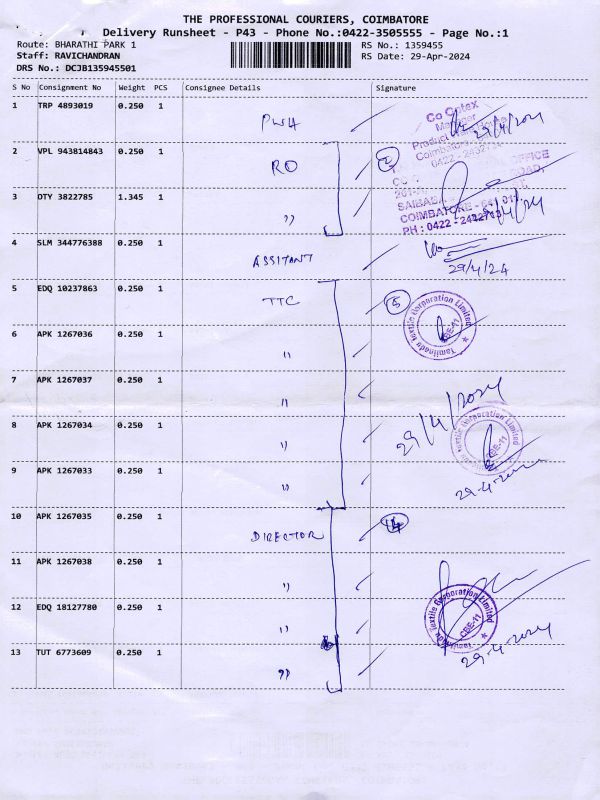 THE PROFESSIONAL COURIERS, COIMBATORE
Delivery Runsheet - P43 - Phone No.:0422-3505555 - Page No.:1
Route: BHARATHI PARK 1
RS No.: 1359455
Staff: RAVICHANDRAN
RS Date: 29-Apr-2024
DRS No.: DCJB135945501
S No Consignment No Weight PCS Consignee Details Signature
1 TRP 4893019 0.250 1
Co Optex
Manager
29/4/2024
Coimbatore
0422 -
2 VPL 943814843 0.250 1 RO 2
OFFICE
ROAD,
3 DTY 3822785 1.345 1 ,,
SAIBABA
COIMBATORE - 641 011
PH : 0422 - 2442713
4 SLM 344776388 0.250 1 ASSITANT
29/4/24
5 EDQ 10237863 0.250 1 TTC 5
Tamilnadu Textile Corporation Limited
CBE-11
6 APK 1267036 0.250 1 ,,
7 APK 1267037 0.250 1 ,,
29/4/2024
8 APK 1267034 0.250 1 ,,
Corporation Limited
CBE-11
9 APK 1267033 0.250 1 ,,
29-4-2024
10 APK 1267035 0.250 1 DIRECTOR 4
11 APK 1267038 0.250 1 ,,
12 EDQ 18127780 0.250 1 ,,
Tamilnadu Textile Corporation Limited
CBE-11
29-4-2024
13 TUT 6773609 0.250 1 ,,